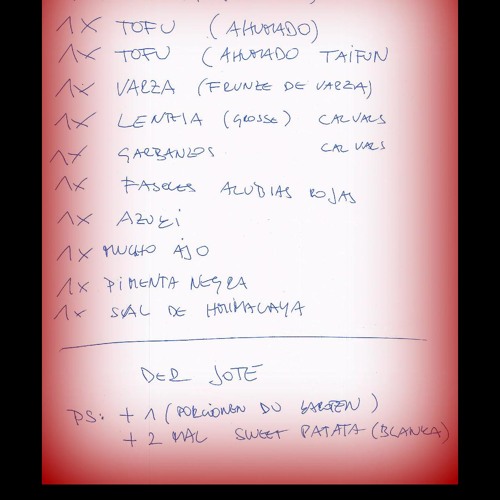 1X TOFU (AHUMADO)
1X TOFU (AHUMADO TAIFUN
1X VARZA (FRUNZE DE VARZA)
1X LENTIA (GROSSE) CARVARS
1X GARBANZOS CARVARS
1X FASOLES ALUBIAS ROJAS
1X AZUKI
1X MUCHO AJO
1X PIMENTA NEGRA
1X SAL DE HIMALAYA
DER JOTE
PS: + 1 (PORCIONEN DU GARTEN)
+ 2 MAL SWEET PATATA (BLANKA)